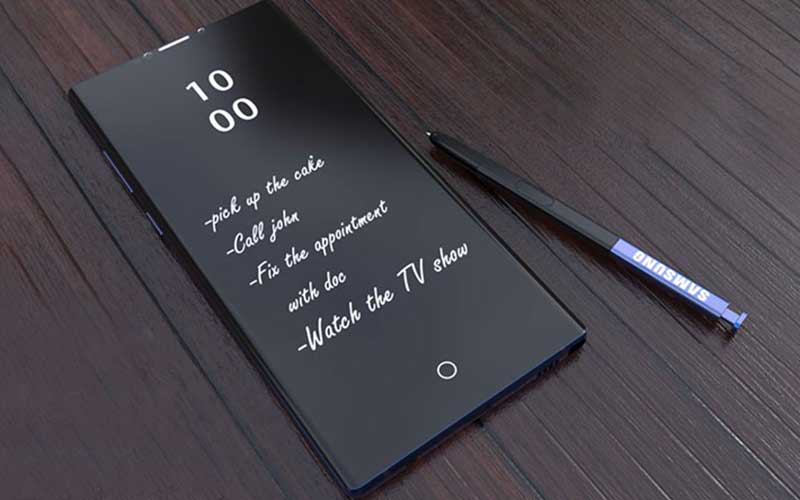 10
00
-pick up the cake
-Call john
-Fix the appointment
with doc
-Watch the TV show
SAMSUNG